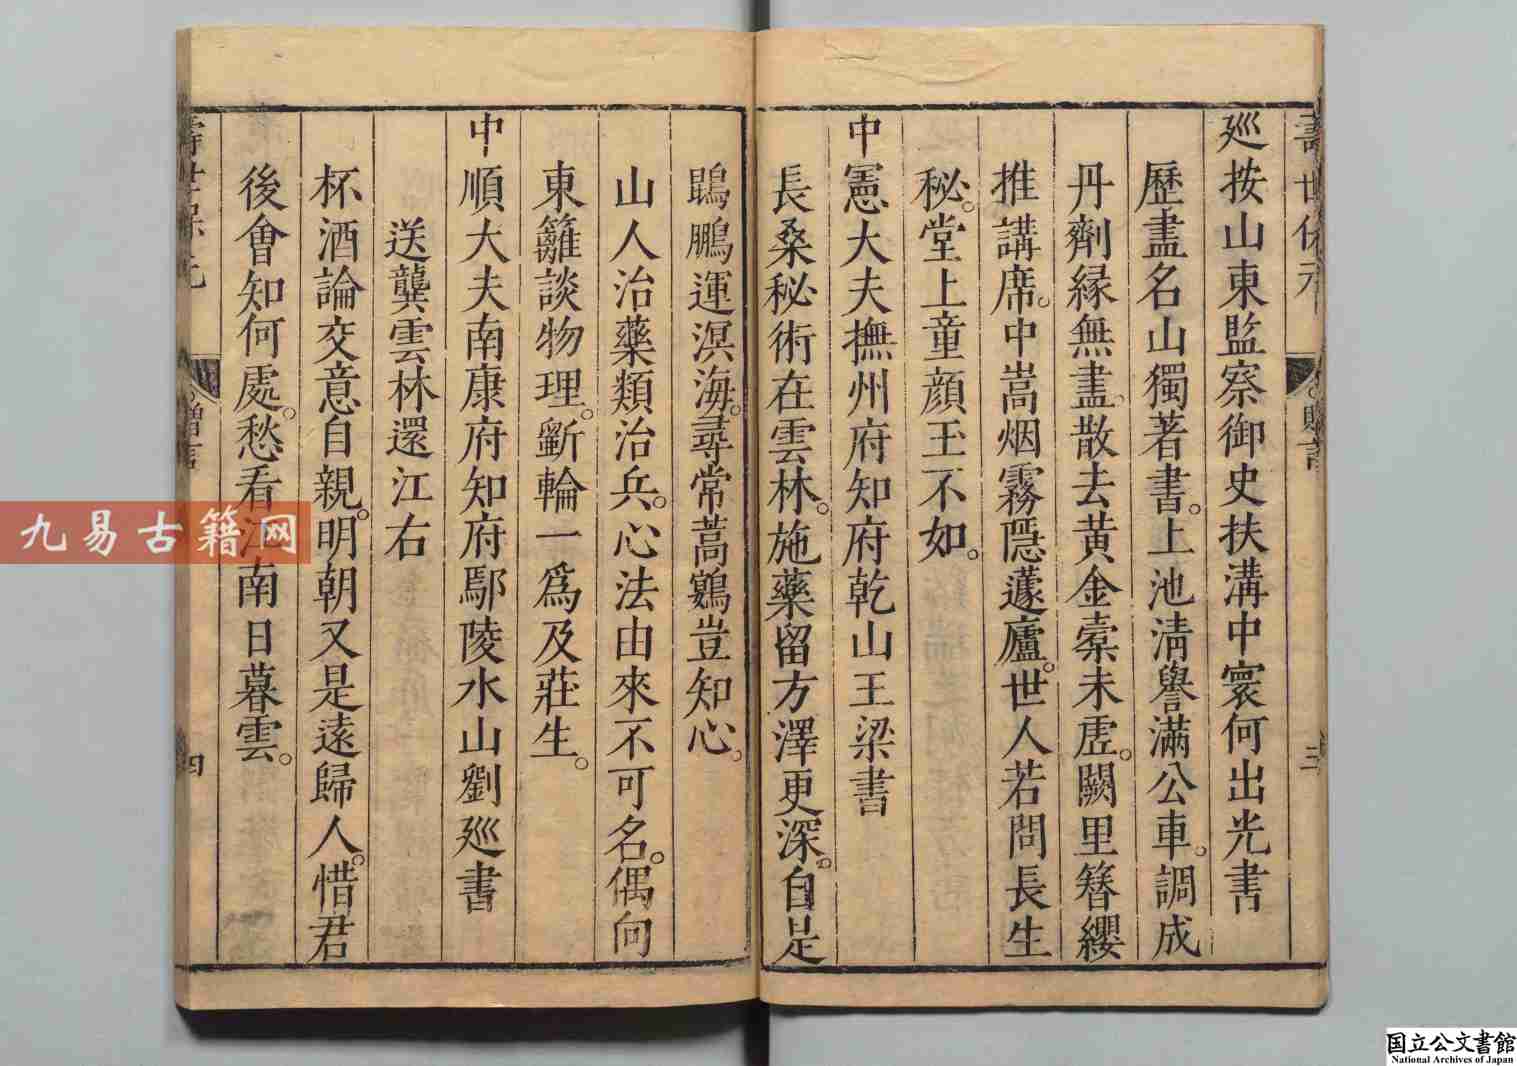 壽世保元
贈言
三
巡按山東監察御史扶溝中寰何出光書
歷盡名山獨著書。上池淸譽滿公車。調成
丹劑緣無盡。散去黃金橐未虛。闕里簪纓
推講席。中嵩烟霧隱蘧廬。世人若問長生
秘。堂上童顔玉不如。
中憲大夫撫州府知府乾山王梁書
長桑秘術在雲林。施藥留方澤更深。自是
鵾鵬運溟海。尋常蒿鷃豈知心。
山人治藥類治兵。心法由來不可名。偶向
東籬談物理。斵輪一爲及莊生。
中順大夫南康府知府鄢陵水山劉巡書
送龔雲林還江右
杯酒論交意自親。明朝又是遠歸人。惜君
後會知何處。愁看江南日暮雲。
壽世保元
贈言
四
九易古籍网
国立公文書館
National Archives of Japan